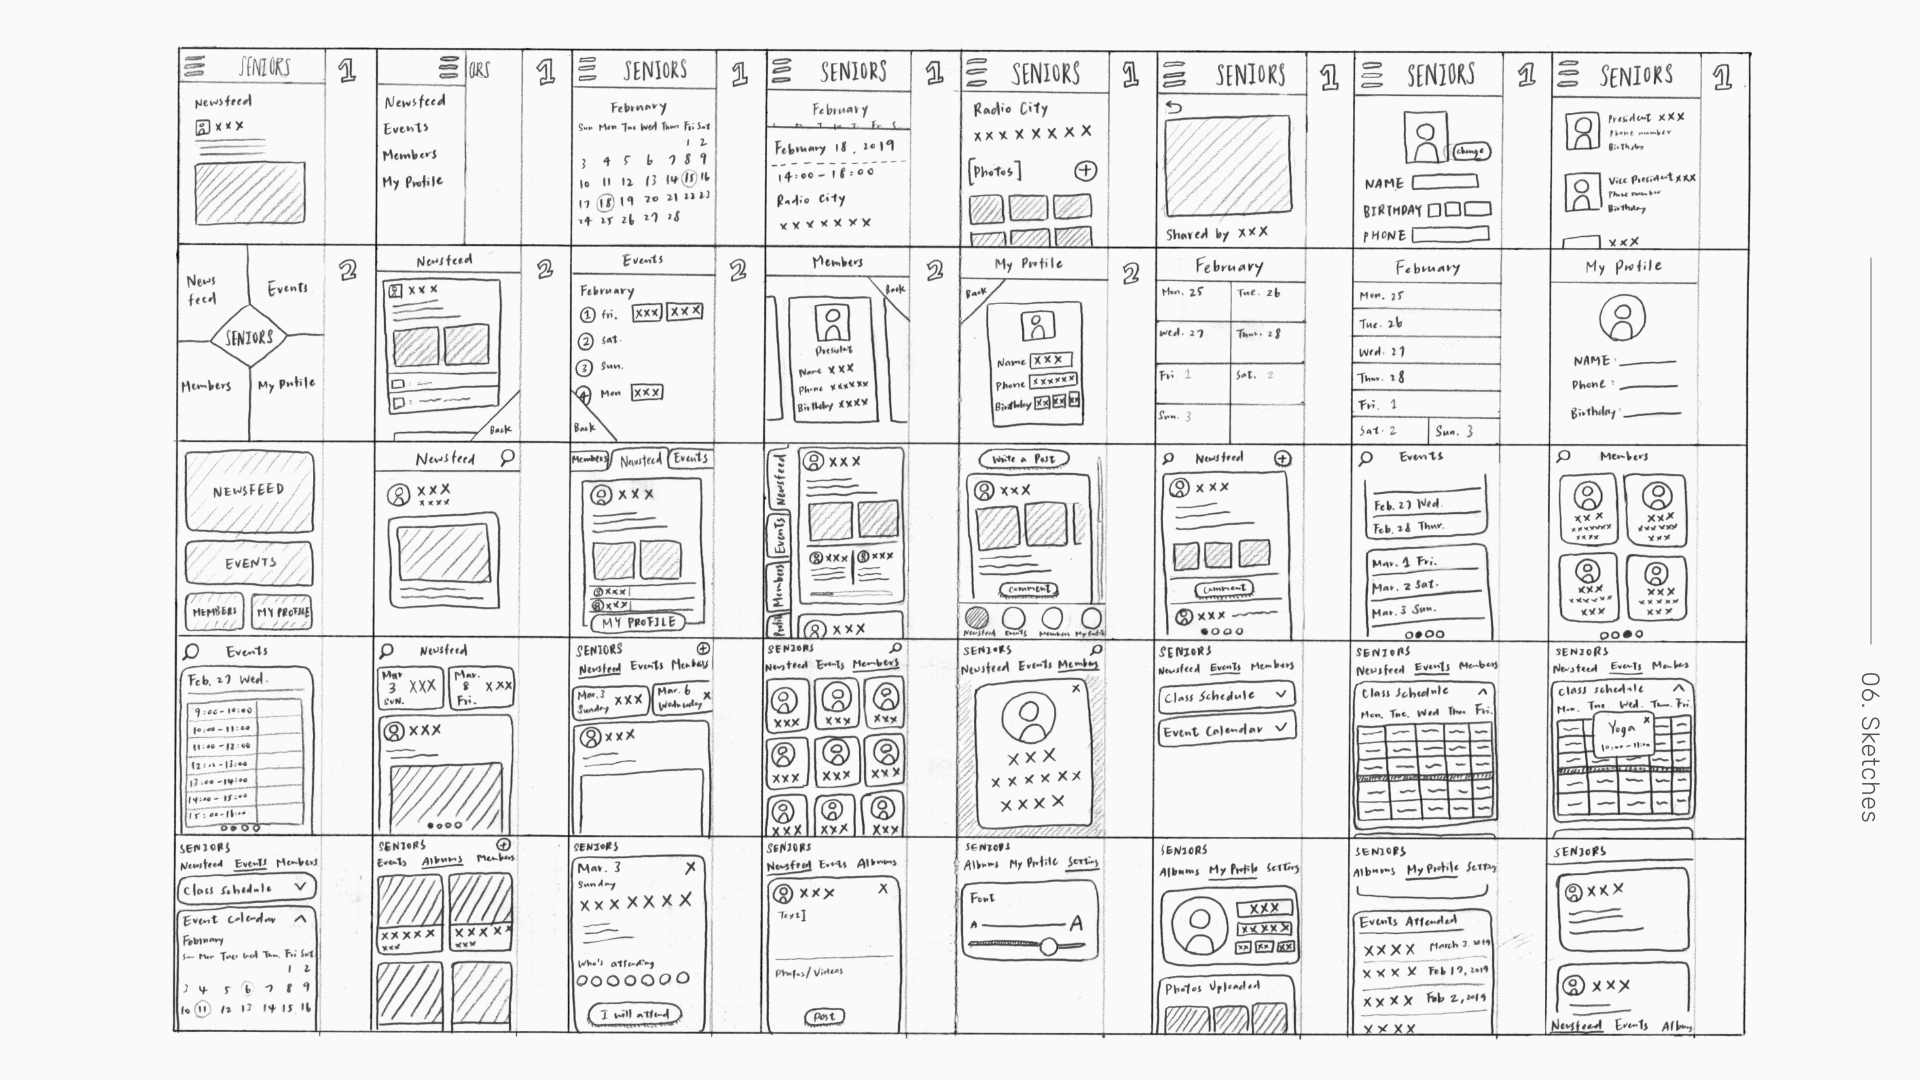 SENIORS
Newsfeed
XXX
1
ORS
Newsfeed
Events
Members
My Profile
1
SENIORS
February
Sun Mon Tue Wed Thur Fri Sat
1 2
3 4 5 6 7 8 9
10 11 12 13 14 15 16
17 18 19 20 21 22 23
24 25 26 27 28
1
SENIORS
February
February 18, 2019
14:00-18:00
Radio City
XXXXXXX
1
SENIORS
Radio City
XXXXXXXX
[Photos]
1
SENIORS
Shared by XXX
1
SENIORS
change
NAME
BIRTHDAY
PHONE
1
SENIORS
President XXX
Phone number
Birthday
Vice President XXX
Phone number
Birthday
XXX
1
News
feed
Events
SENIORS
Members
My Profile
2
Newsfeed
XXX
Back
2
Events
February
1 Fri. XXX XXX
2 Sat.
3 Sun.
4 Mon XXX
Back
2
Members
Back
President
Name XXX
Phone XXXXXX
Birthday XXXX
2
My Profile
Back
Name XXX
Phone XXXXXX
Birthday XX XX XX
2
February
Mon. 25 Tue. 26
Wed. 27 Thur. 28
Fri 1 Sat. 2
Sun. 3
February
Mon. 25
Tue. 26
Wed. 27
Thur. 28
Fri. 1
Sat. 2 Sun. 3
My Profile
NAME:
Phone:
Birthday:
NEWSFEED
EVENTS
MEMBERS MY PROFILE
Newsfeed
XXX
XXXX
Members Newsfeed Events
XXX
XXX
XXX
MY PROFILE
Newsfeed
Events
Members
Profile
XXX
XXX XXX
XXX
Write a Post
XXX
comment
Newsfeed Events Members My Profile
Newsfeed
XXX
comment
XXX
Events
Feb. 27 Wed.
Feb. 28 Thur.
Mar. 1 Fri.
Mar. 2 Sat.
Mar. 3 Sun.
Members
XXX XXX
XXXXXXX XXXXXXX
XXXX XXXX
XXX XXX
XXXXXX XXXXXX
XXX XXX
Events
Feb. 27 Wed.
9:00-10:00
10:00-11:00
11:00-12:00
12:00-13:00
13:00-14:00
14:00-15:00
15:00-16:00
Newsfeed
Mar
3
SUN.
XXX
Mar.
8
Fri.
XXX
XXX
SENIORS
Newsfeed Events Members
Mar. 3
Sunday
XXX
Mar. 6
Wednesday
X
XXX
SENIORS
Newsfeed Events Members
XXX XXX XXX
XXX XXX XXX
XXX XXX XXX
SENIORS
Newsfeed Events Members
X
XXX
XXXXXX
XXXX
SENIORS
Newsfeed Events Members
Class Schedule
Event Calendar
SENIORS
Newsfeed Events Members
Class Schedule
Mon. Tue. Wed Thur Fri.
SENIORS
Newsfeed Events Members
Class schedule
Mon. Tue. Wed. Thur. Fri.
X
Yoga
10:00-11:00
SENIORS
Newsfeed Events Members
Class Schedule
Event Calendar
February
Sun Mon Tues Wed Thu. Fri Sat
1 2
3 4 5 6 7 8 9
10 11 12 13 14 15 16
SENIORS
Events Albums Members
XXXXX XXXXX
XXX XXX
SENIORS
Mar. 3 X
Sunday
XXXXXXX
Who's attending
I will attend
SENIORS
Newsfeed Events Albums
XXX X
Text
Photos/Videos
Post
SENIORS
Albums My Profile Setting
Font
A A
SENIORS
Albums My Profile Setting
XXX
XXXXX
XX XX XX
Photos Uploaded
SENIORS
Albums My Profile Setting
Events Attended
XXXX March 3, 2019
XXXX Feb 17, 2019
XXXX Feb 2, 2019
XXXX
SENIORS
XXX
XXX
Newsfeed Events Album
06. Sketches